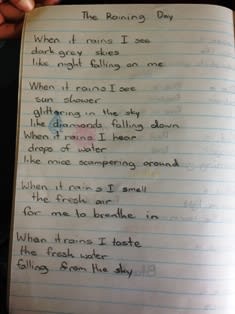 The Raining Day
When it rains I see
dark grey skies
like night falling on me
When it rains I see
sun shower
glittering in the sky
like diamonds falling down
When it rains I hear
drops of water
like mice scampering around
When it rains I smell
the fresh air
for me to breathe in
When it rains I taste
the fresh water
falling from the sky